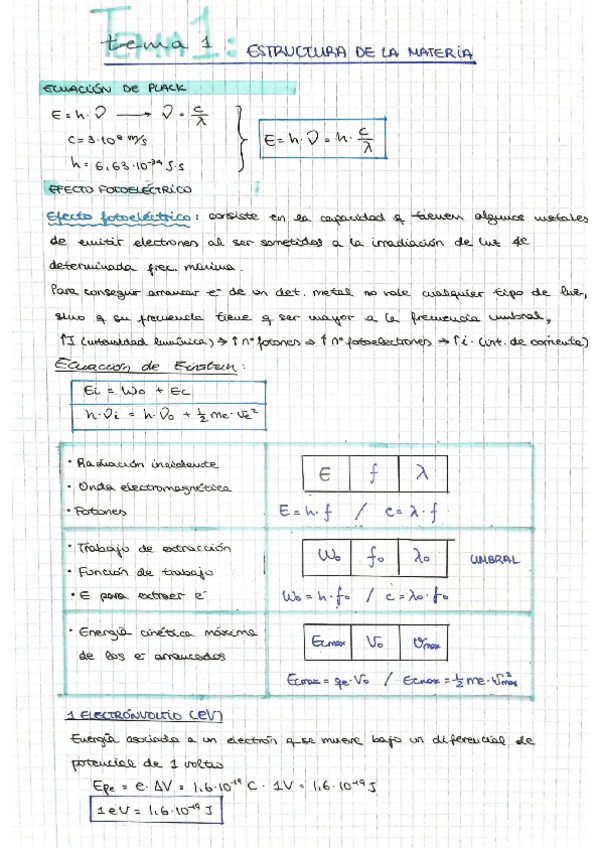 Tema 1:
tema 1 : ESTRUCTURA DE LA MATERIA
ECUACIÓN DE PLACK
E = h · ν → ν = c/λ
c = 3·10⁸ m/s
h = 6,63·10⁻³⁴ J·s
E = h · ν = h · c/λ
EFECTO FOTOELÉCTRICO
Efecto fotoeléctrico: consiste en la capacidad q tienen algunos metales
de emitir electrones al ser sometidos a la irradiación de luz de
determinada frec. mínima.
Para conseguir arrancar e⁻ de un det. metal no vale cualquier tipo de luz,
sino q su frecuencia tiene q ser mayor a la frecuencia umbral,
↑I (intensidad lumínica) → ↑ nº fotones → ↑ nº fotoelectrones → ↑i · (int. de corriente)
Ecuación de Einstein:
Ei = Wo + Ec
h·νi = h·νo + ½ me·ve²
· Radiación incidente
· Onda electromagnética
· Fotones
E f λ
E = h·f / c = λ·f
· Trabajo de extracción
· Función de trabajo
· E para extraer e⁻
Wo fo λo UMBRAL
Wo = h·fo / c = λo·fo
· Energía cinética máxima
de los e⁻ arrancados
Ecmax Vo vmax
Ecmax = qe·Vo / Ecmax = ½ me·v²max
1 ELECTRÓNVOLTIO (eV)
Energía asociada a un electrón q se mueve bajo un diferencial de
potencial de 1 voltio
Epe = e·ΔV = 1,6·10⁻¹⁹ C · 1V = 1,6·10⁻¹⁹ J
1 eV = 1,6·10⁻¹⁹ J